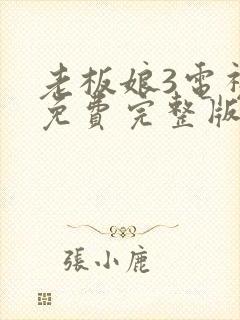 老板娘3雷
免費完整版
張小鹿